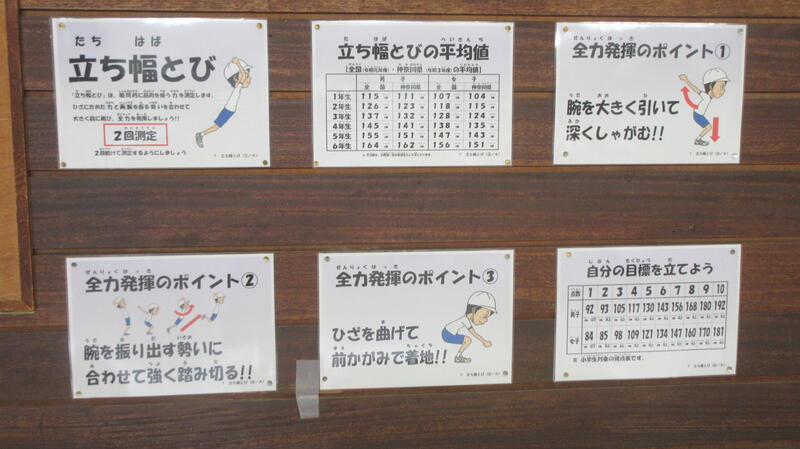 たち はば
立ち幅とび
「立ち幅とび」は、瞬間的に筋肉を使う力を測定します。
ひざにためた力と両腕を振る勢いを合わせて
大きく前に跳び、全力を発揮しましょう!!
2回測定
2回続けて測定するようにしましょう
はば へいきんち
立ち幅とびの平均値
【全国(令和元年度)・神奈川県(令和3年度)の平均値】
男子 女子
全国 神奈川県 全国 神奈川県
1年生 115 111 107 104
2年生 126 123 118 115
3年生 137 132 128 124
4年生 145 141 138 135
5年生 155 151 147 143
6年生 164 162 156 151
ぜんりょくはっき
全力発揮のポイント①
うで おお ひ
腕を大きく引いて
ふか
深くしゃがむ!!
ぜんりょくはっき
全力発揮のポイント②
うで ふ だ いきお
腕を振り出す勢いに
あ つよ ふ き
合わせて強く踏み切る!!
ぜんりょくはっき
全力発揮のポイント③
ま
ひざを曲げて
まえ ちゃくち
前かがみで着地!!
じぶん もくひょう た
自分の目標を立てよう
点数 1 2 3 4 5 6 7 8 9 10
男子 92 93 105 117 130 143 156 168 180 192
女子 84 85 98 109 121 134 147 160 170 181
※ 小学生対象の得点表です。